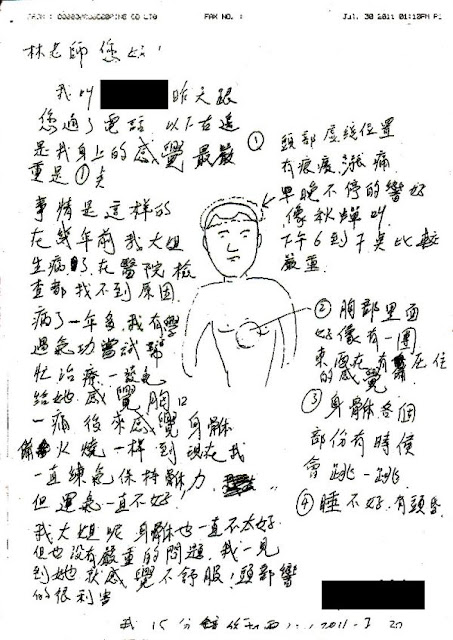 FAX NO. :
Jul. 30 2011 01:10PM P1
林老師您好!
我叫 昨天跟
您通了電話. 以下右邊
是我身上的感覺最嚴
重是①点
事情是這样的
在幾年前我大姐
生病了. 在醫院檢
查都找不到原因.
病了一年多. 我有學
過氣功嘗試幫
忙治療. 一發氣
給她. 感覺胸口
一痛後來感覺身體
火燒一样到現在我
一直練氣保持體力
但運氣一直不好!
我大姐呢身體也一直不太好.
但也沒有嚴重的問題. 我一見
到她就感覺不舒服! 頭部響
的很利害
① 頭部虛線位置
有痠痠漲痛
早晚不停的響好
像秋蟬叫.
下午6到7点比較
嚴重.
② 胸部里面
好像有一團
東西在有压住
的感覺
③ 身體各個
部份有時候
會跳一跳
④ 睡不好. 有頭昏